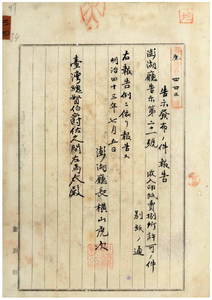 告示發布ノ件報告
澎湖廳告示第二十一號
收入印紙賣捌所許可ノ件
別紙ノ通
右報告例ニ依リ報告ス
明治四十三年七月五日
澎湖廳長橫山虎次
臺灣總督伯爵佐久間左馬太殿